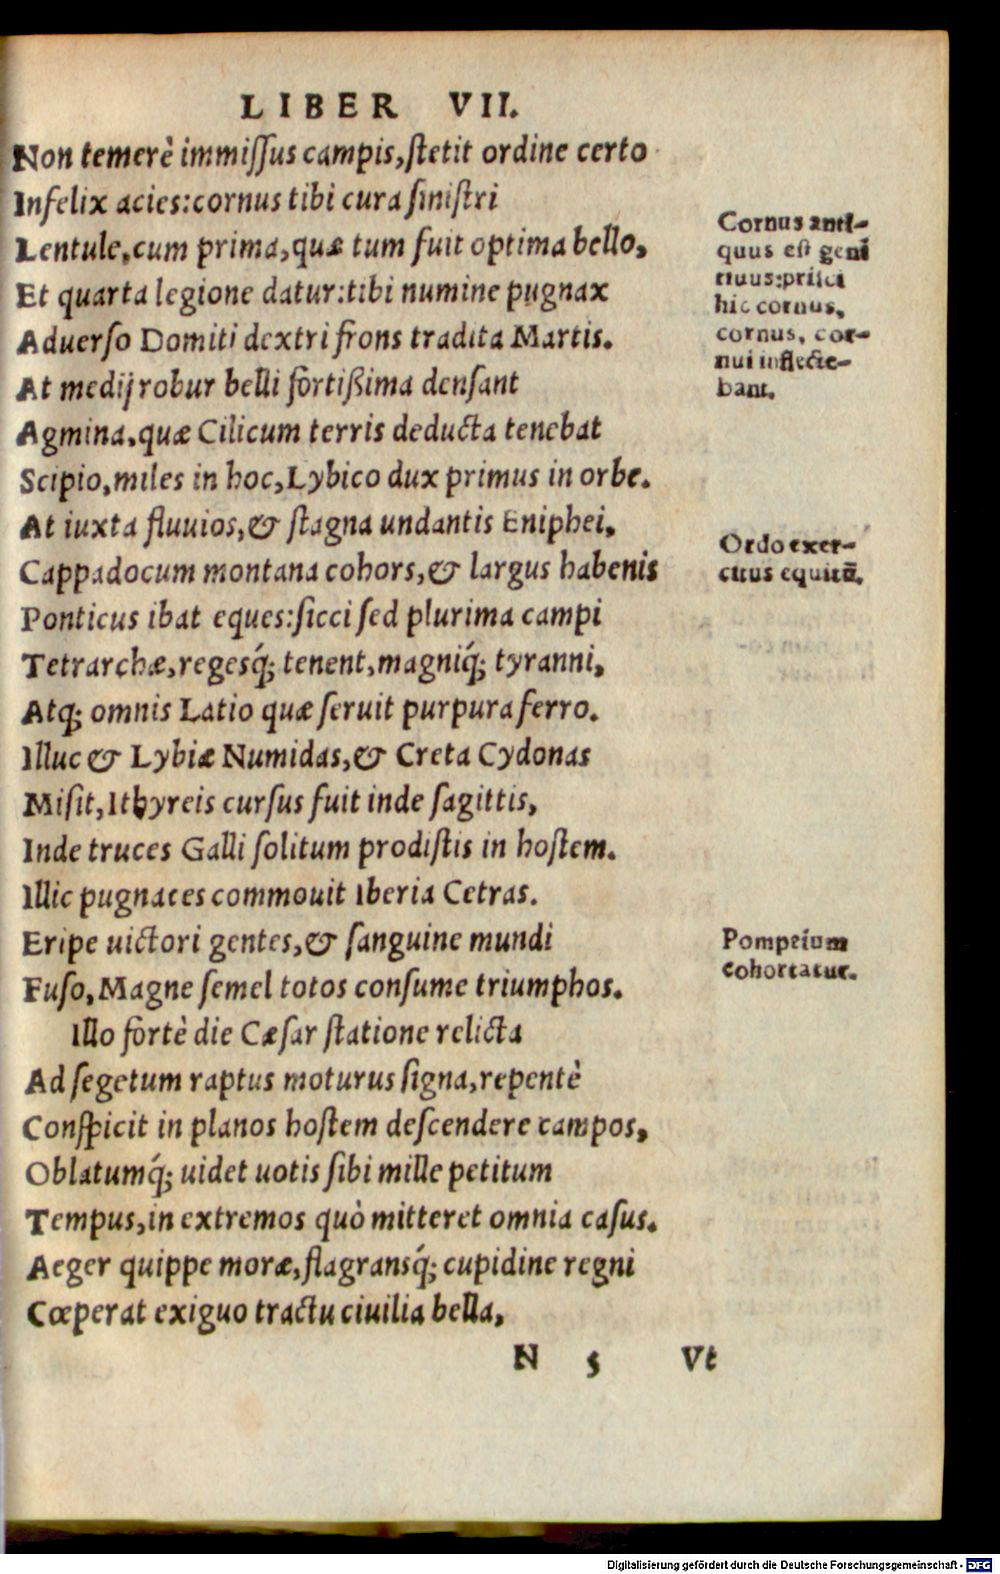 LIBER VII.
Non temerè immiſſus campis,ſtetit ordine certo
Infelix acies:cornus tibi cura ſiniſtri
Lentule,cum prima,quæ tum fuit optima bello,
Et quarta legione datur:tibi numine pugnax
Aduerſo Domiti dextri frons tradita Martis.
At medij robur belli fortißima denſant
Agmina,quæ Cilicum terris deducta tenebat
Scipio,miles in hoc,Lybico dux primus in orbe.
At iuxta fluuios,& ſtagna undantis Eniphei,
Cappadocum montana cohors,& largus habenis
Ponticus ibat eques:ſicci ſed plurima campi
Tetrarchæ,regesq́; tenent,magniq́; tyranni,
Atq; omnis Latio quæ ſeruit purpura ferro.
Illuc & Lybiæ Numidas,& Creta Cydonas
Miſit,Ithyreis curſus fuit inde ſagittis,
Inde truces Galli ſolitum prodiſtis in hoſtem.
Illic pugnaces commouit Iberia Cetras.
Eripe uictori gentes,& ſanguine mundi
Fuſo,Magne ſemel totos conſume triumphos.
Illo fortè die Cæſar ſtatione relicta
Ad ſegetum raptus moturus ſigna,repentè
Conſpicit in planos hoſtem deſcendere campos,
Oblatumq́; uidet uotis ſibi mille petitum
Tempus,in extremos quò mitteret omnia caſus.
Aeger quippe moræ,flagransq́; cupidine regni
Cœperat exiguo tractu ciuilia bella,
N 5 Vt
Cornus anti-
quus eſt geni
tiuus:priſci
hic cornus,
cornus, cor-
nui inflecte-
bant.
Ordo exer-
citus equitū.
Pompeium
cohortatur.
Digitalisierung gefördert durch die Deutsche Forschungsgemeinschaft - DFG